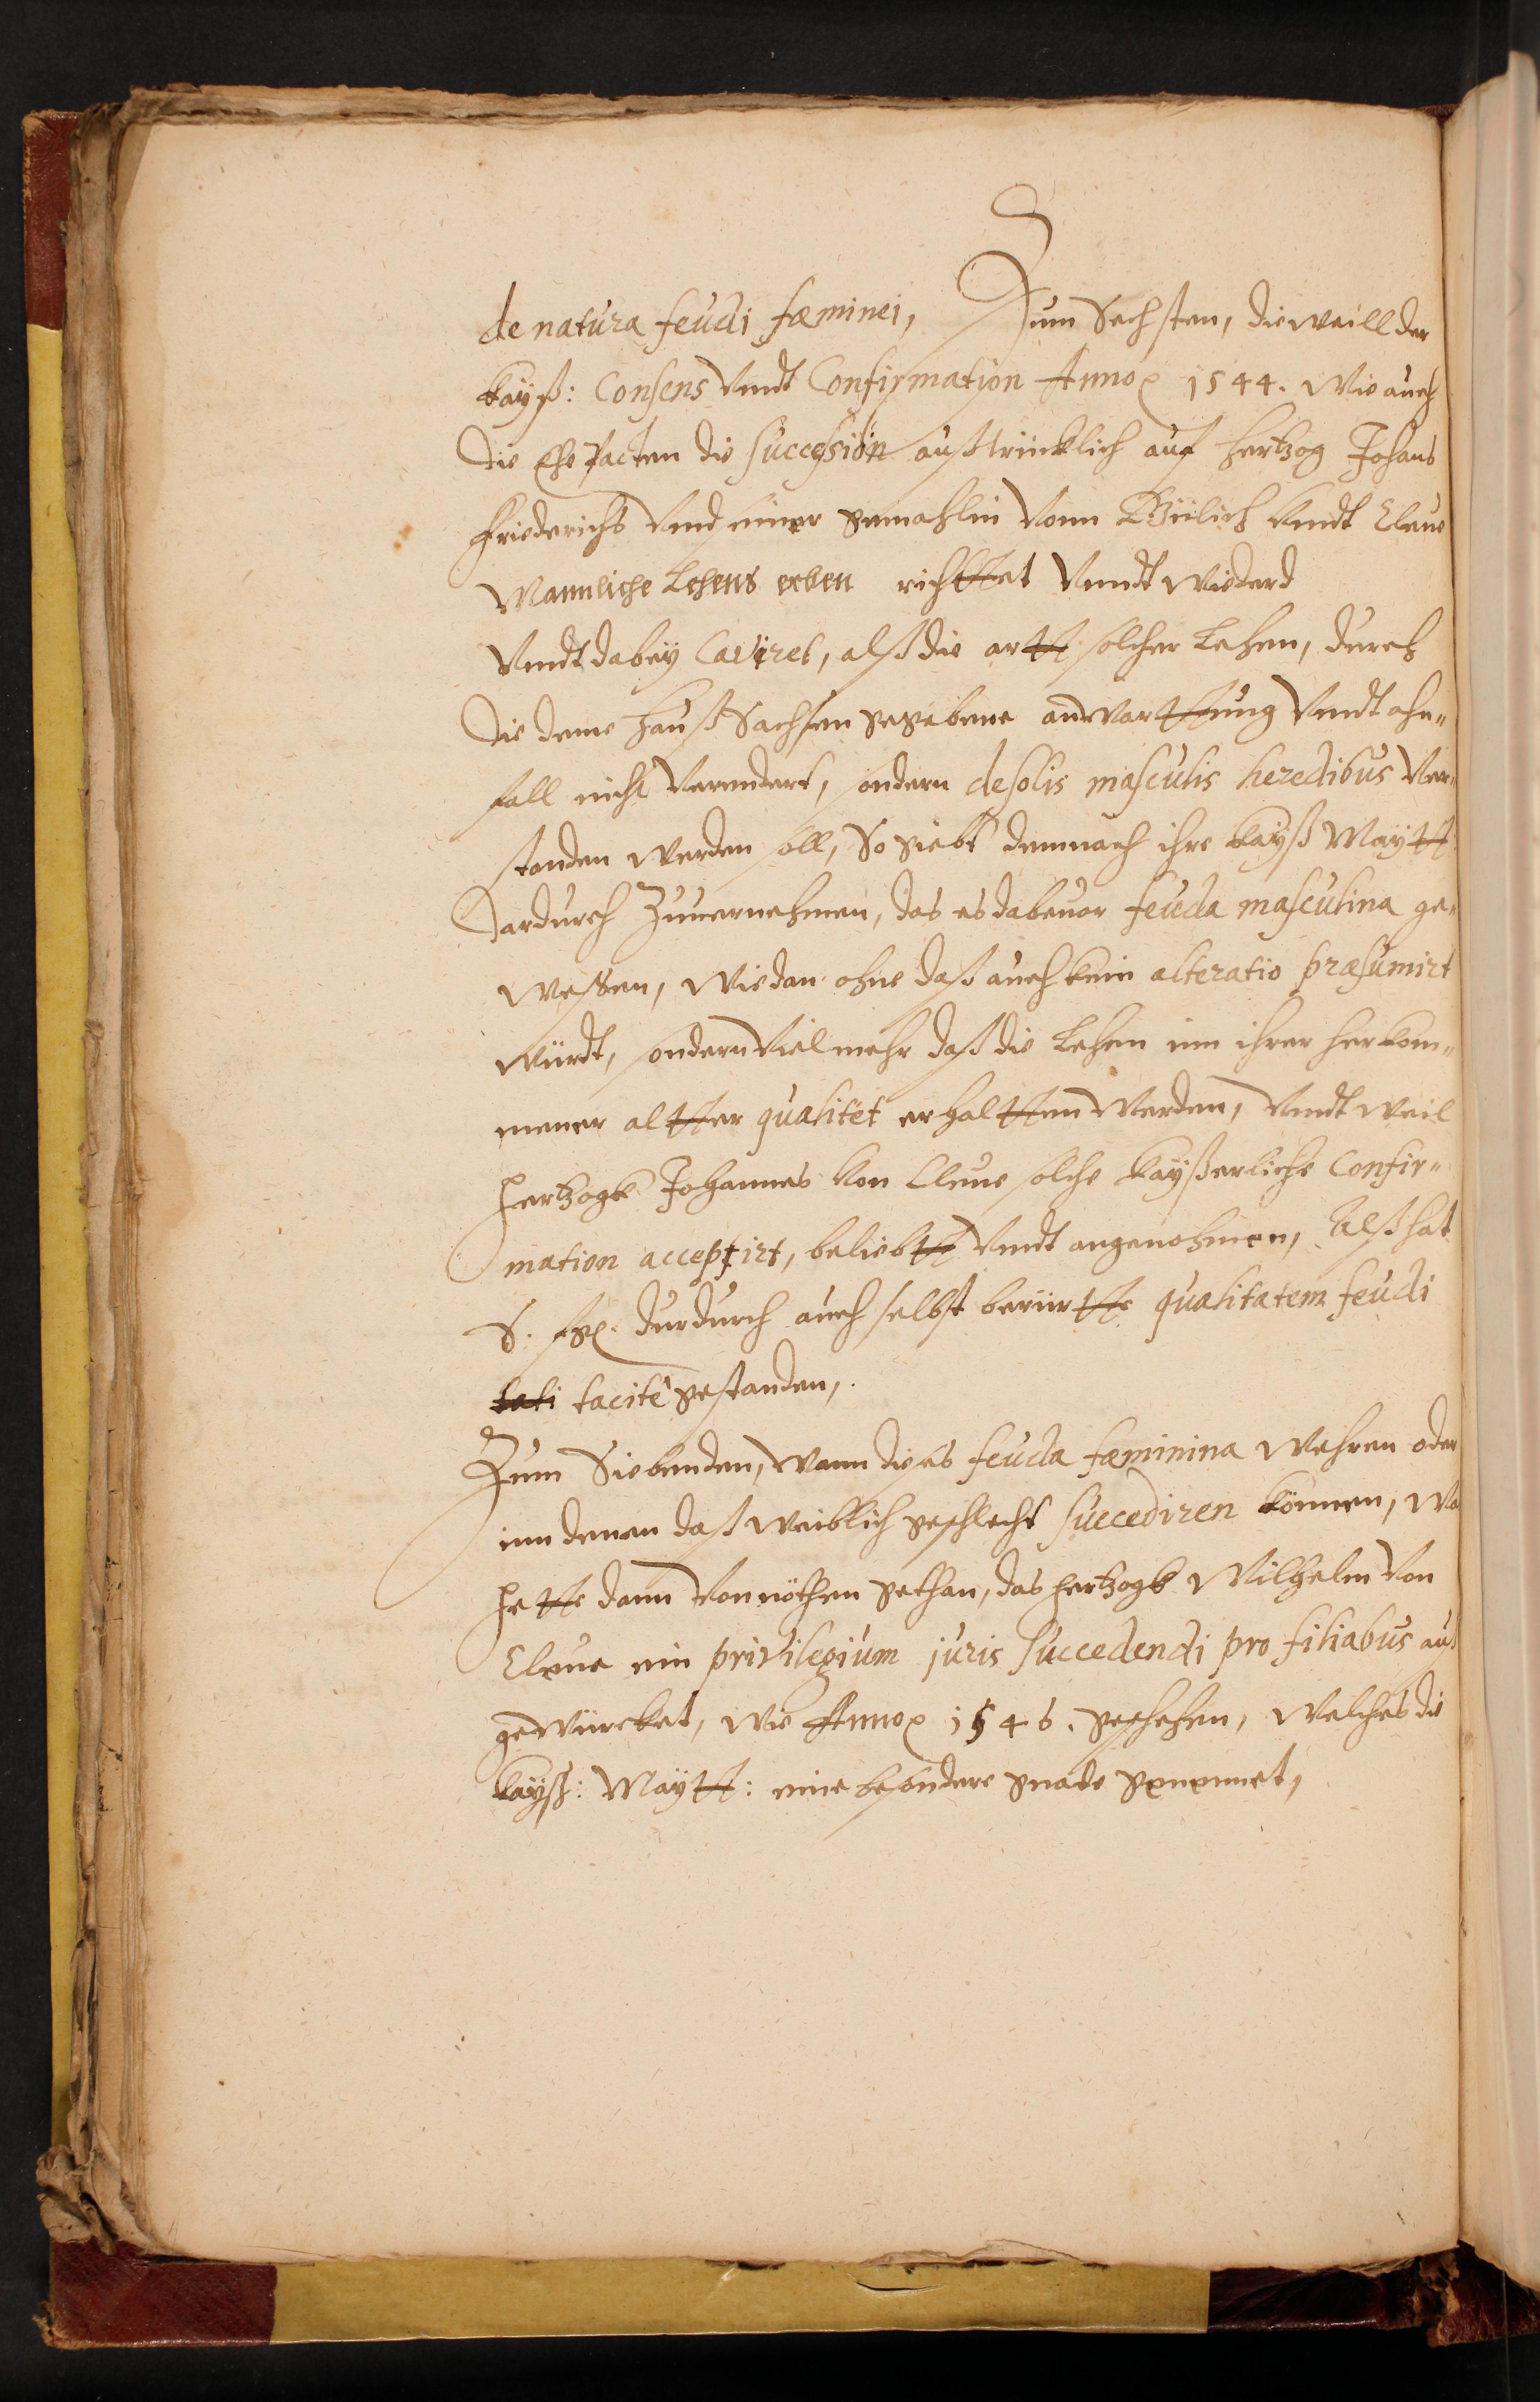 de natura feudi fœminei, Zum Sechsten, dieweill der
kayß: Consens vndt Confirmation Anno 1544. wie auch
die Ehe Pacten die succession außtrücklich auf Hertzog Johans
Friederichs vnd seiner gemahlin vonn Gülich vndt Cleue
Mannliche Lehens erben richttet vndt
vndt dabey Caviret, alß die artt solcher Lehen, durch
die deme Hauß Sachsen gegebene anwarttung vndt ahn„
fall nicht verendert, sondern de solis masculis heredibus ver„
standen werden soll, So giebt demnach ihre kayß Maytt
dardurch zuuernehmen, das es dabeuor feuda masculina ge„
weßen, wie dan ohne daß auch kein alteratio præsumirt
würdt, sondern viel mehr daß die Lehen inn ihrer herkom„
mener altter qualitet erhaltten werden, vndt weil
Hertzogk Johannes von Cleue solche kayßerliche Confir„
mation acceptirt, beliebtt vndt angenohmen, Alß hat
S. fg. durdurch auch selbst berürtte qualitatem feudi
tali tacitè gestanden,.
Zum Siebenden, wann dieses feuda fœminina wehren oder
inn denen daß weiblich geschlecht succediren können, wa
hette dann vonnöthen gethan, das Hertzogk Wilhelm von
Cleue ein privilegium juris succedendi pro filiabus auß
gewürcket, wie Anno 1546. geschehen, welches die
kayß: Maytt: eine besondere gnade genennet,